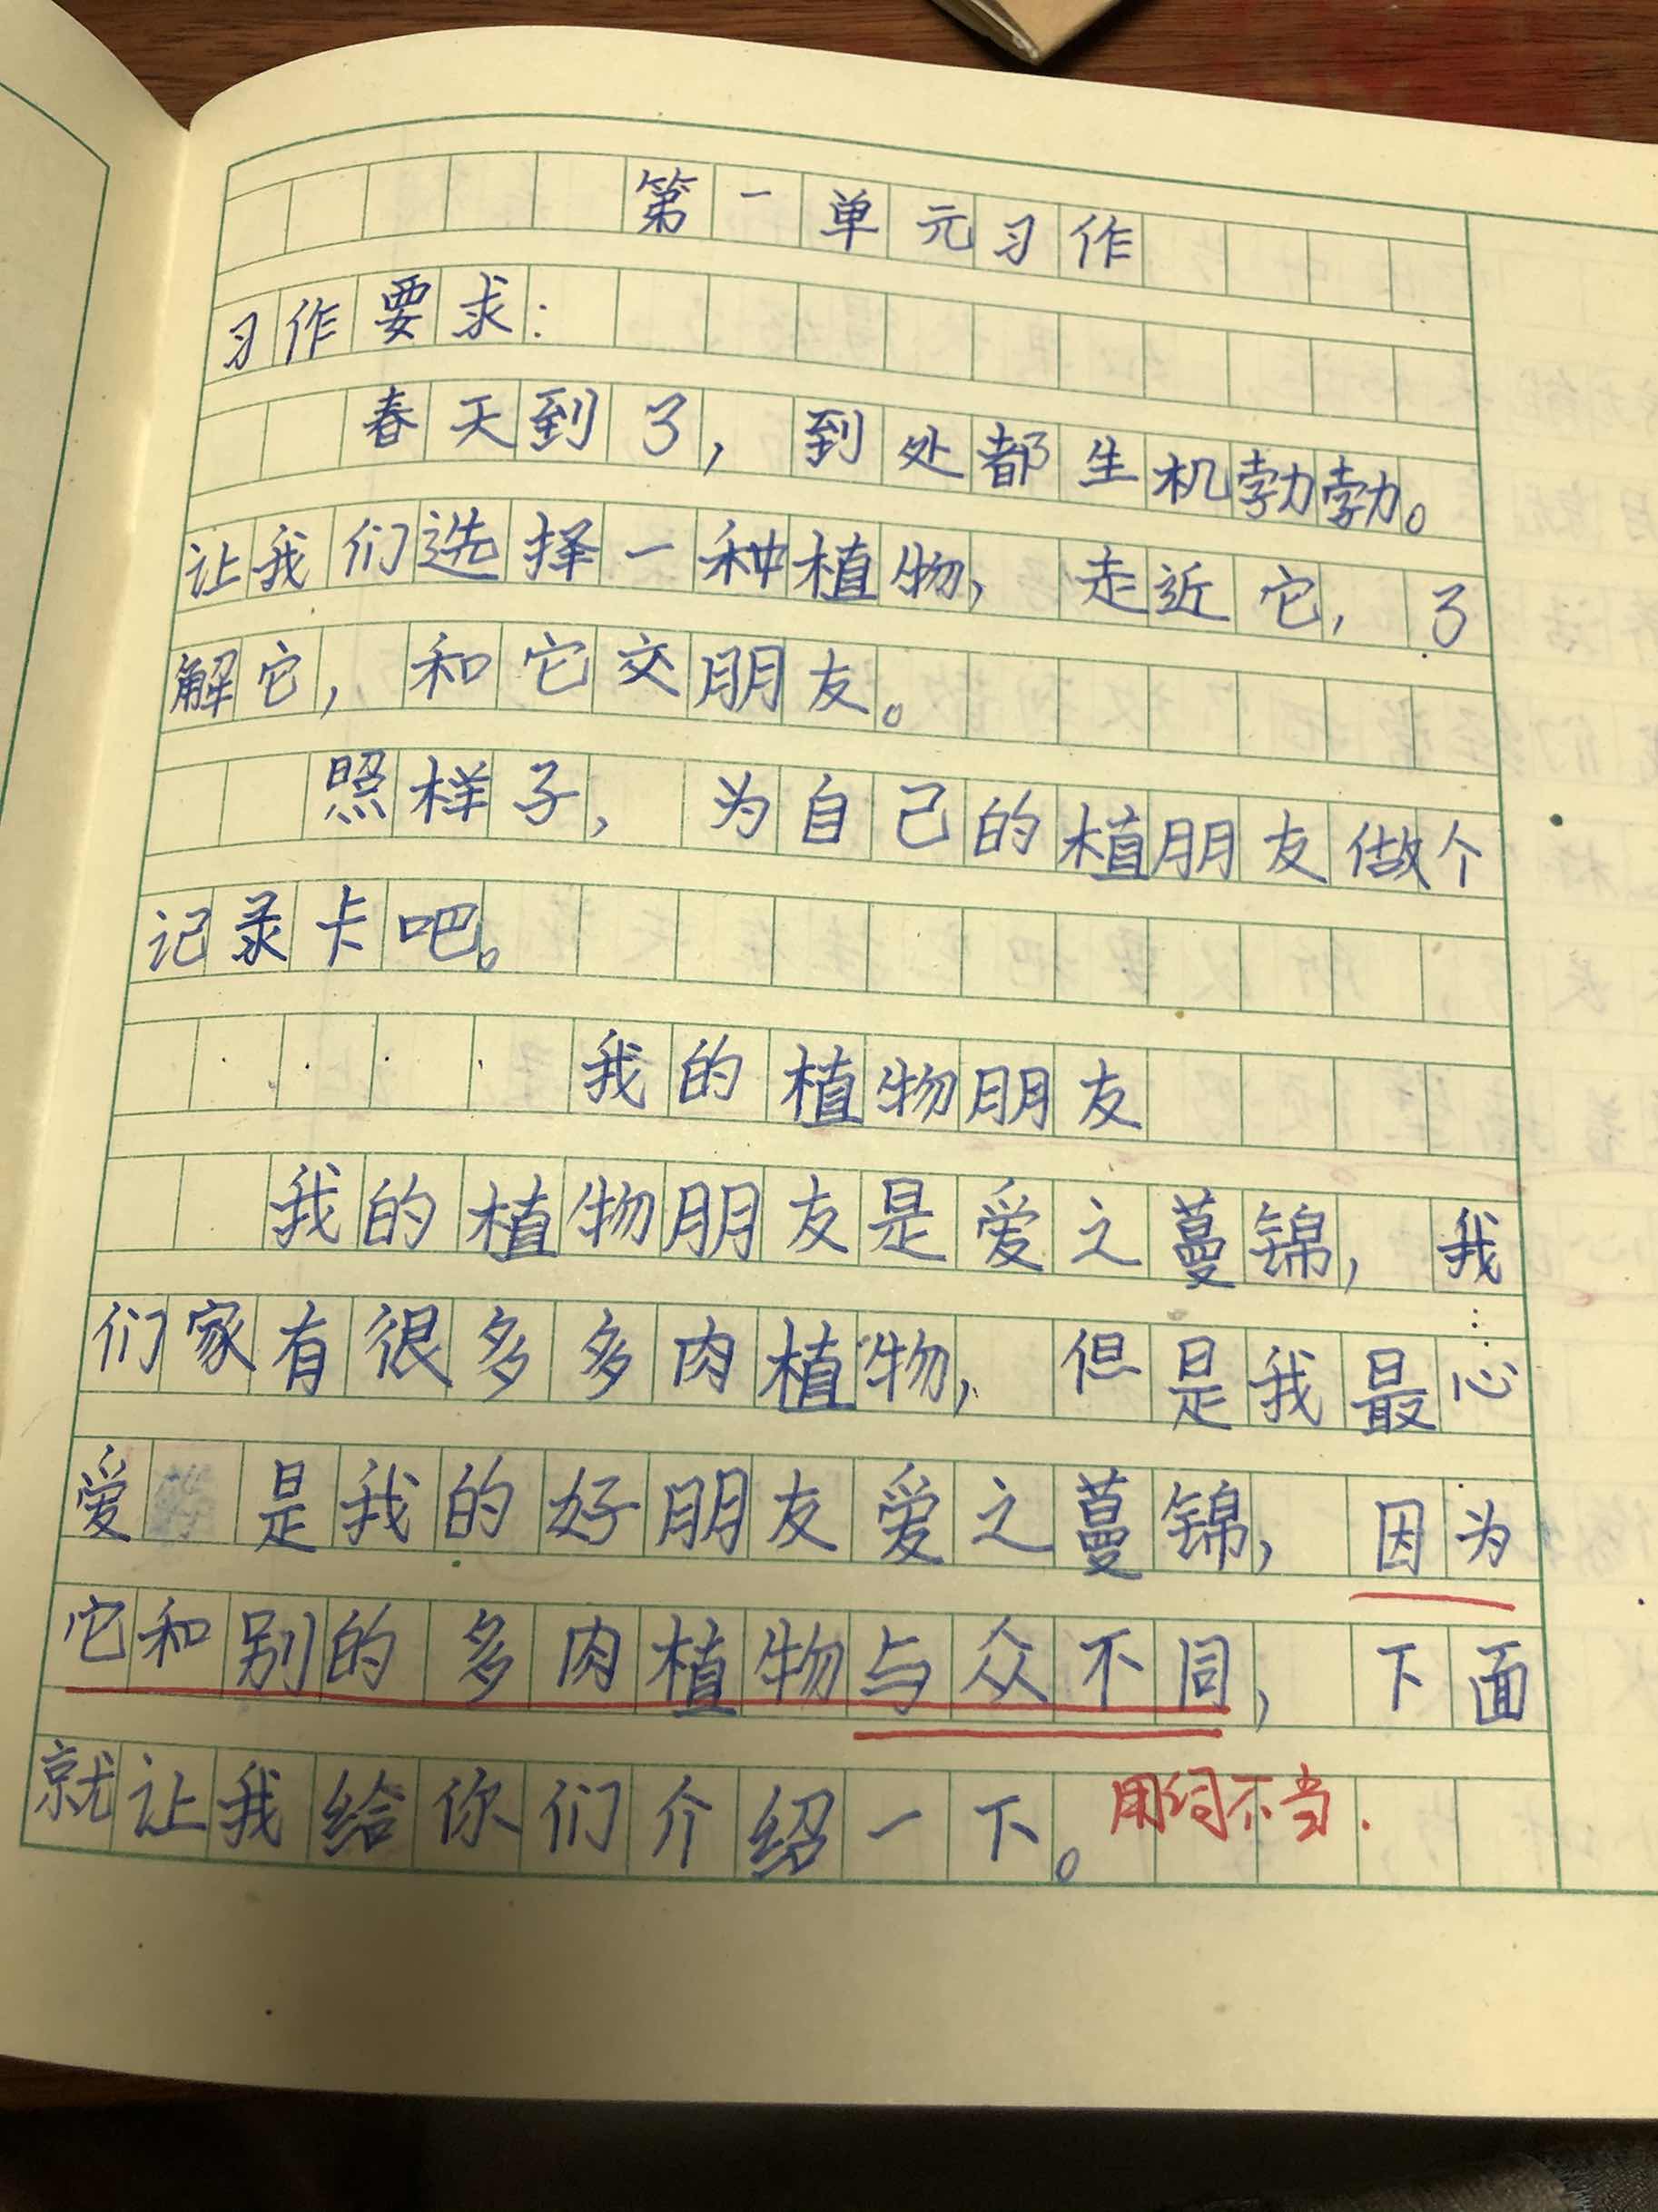 第一单元习作
习作要求:
春天到了，到处都生机勃勃。
让我们选择一种植物，走近它，了
解它，和它交朋友。
照样子，为自己的植朋友做个
记录卡吧。
我的植物朋友
我的植物朋友是爱之蔓锦，我
们家有很多多肉植物，但是我最心
爱是我的好朋友爱之蔓锦，因为
它和别的多肉植物与众不同，下面
就让我给你们介绍一下。用词不当.